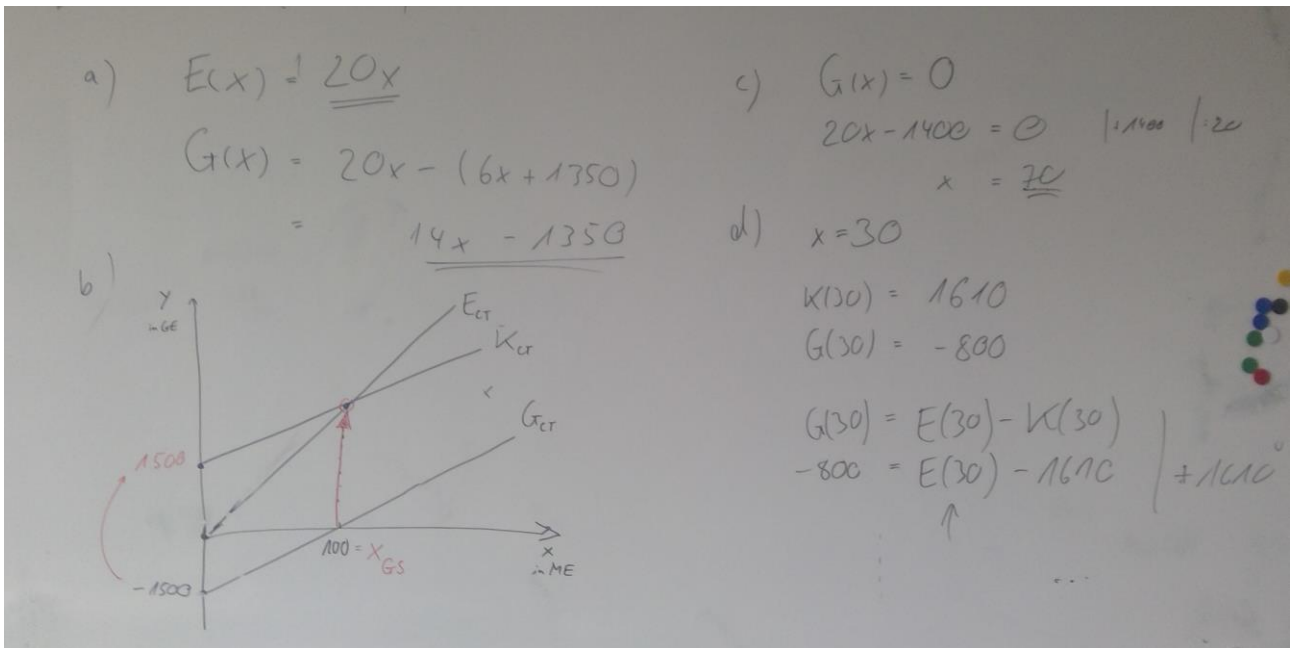 a) E(x) = 20x
G(x) = 20x - (6x + 1350)
= 14x - 1350
b)
y
in GE
E_CT
K_CT
G_CT
1500
100 = x_GS
x
in ME
-1500
c) G(x) = 0
20x - 1400 = 0 |+1400 |:20
x = 70
d) x = 30
K(30) = 1610
G(30) = -800
G(30) = E(30) - K(30)
-800 = E(30) - 1610 | +1610
↑
...